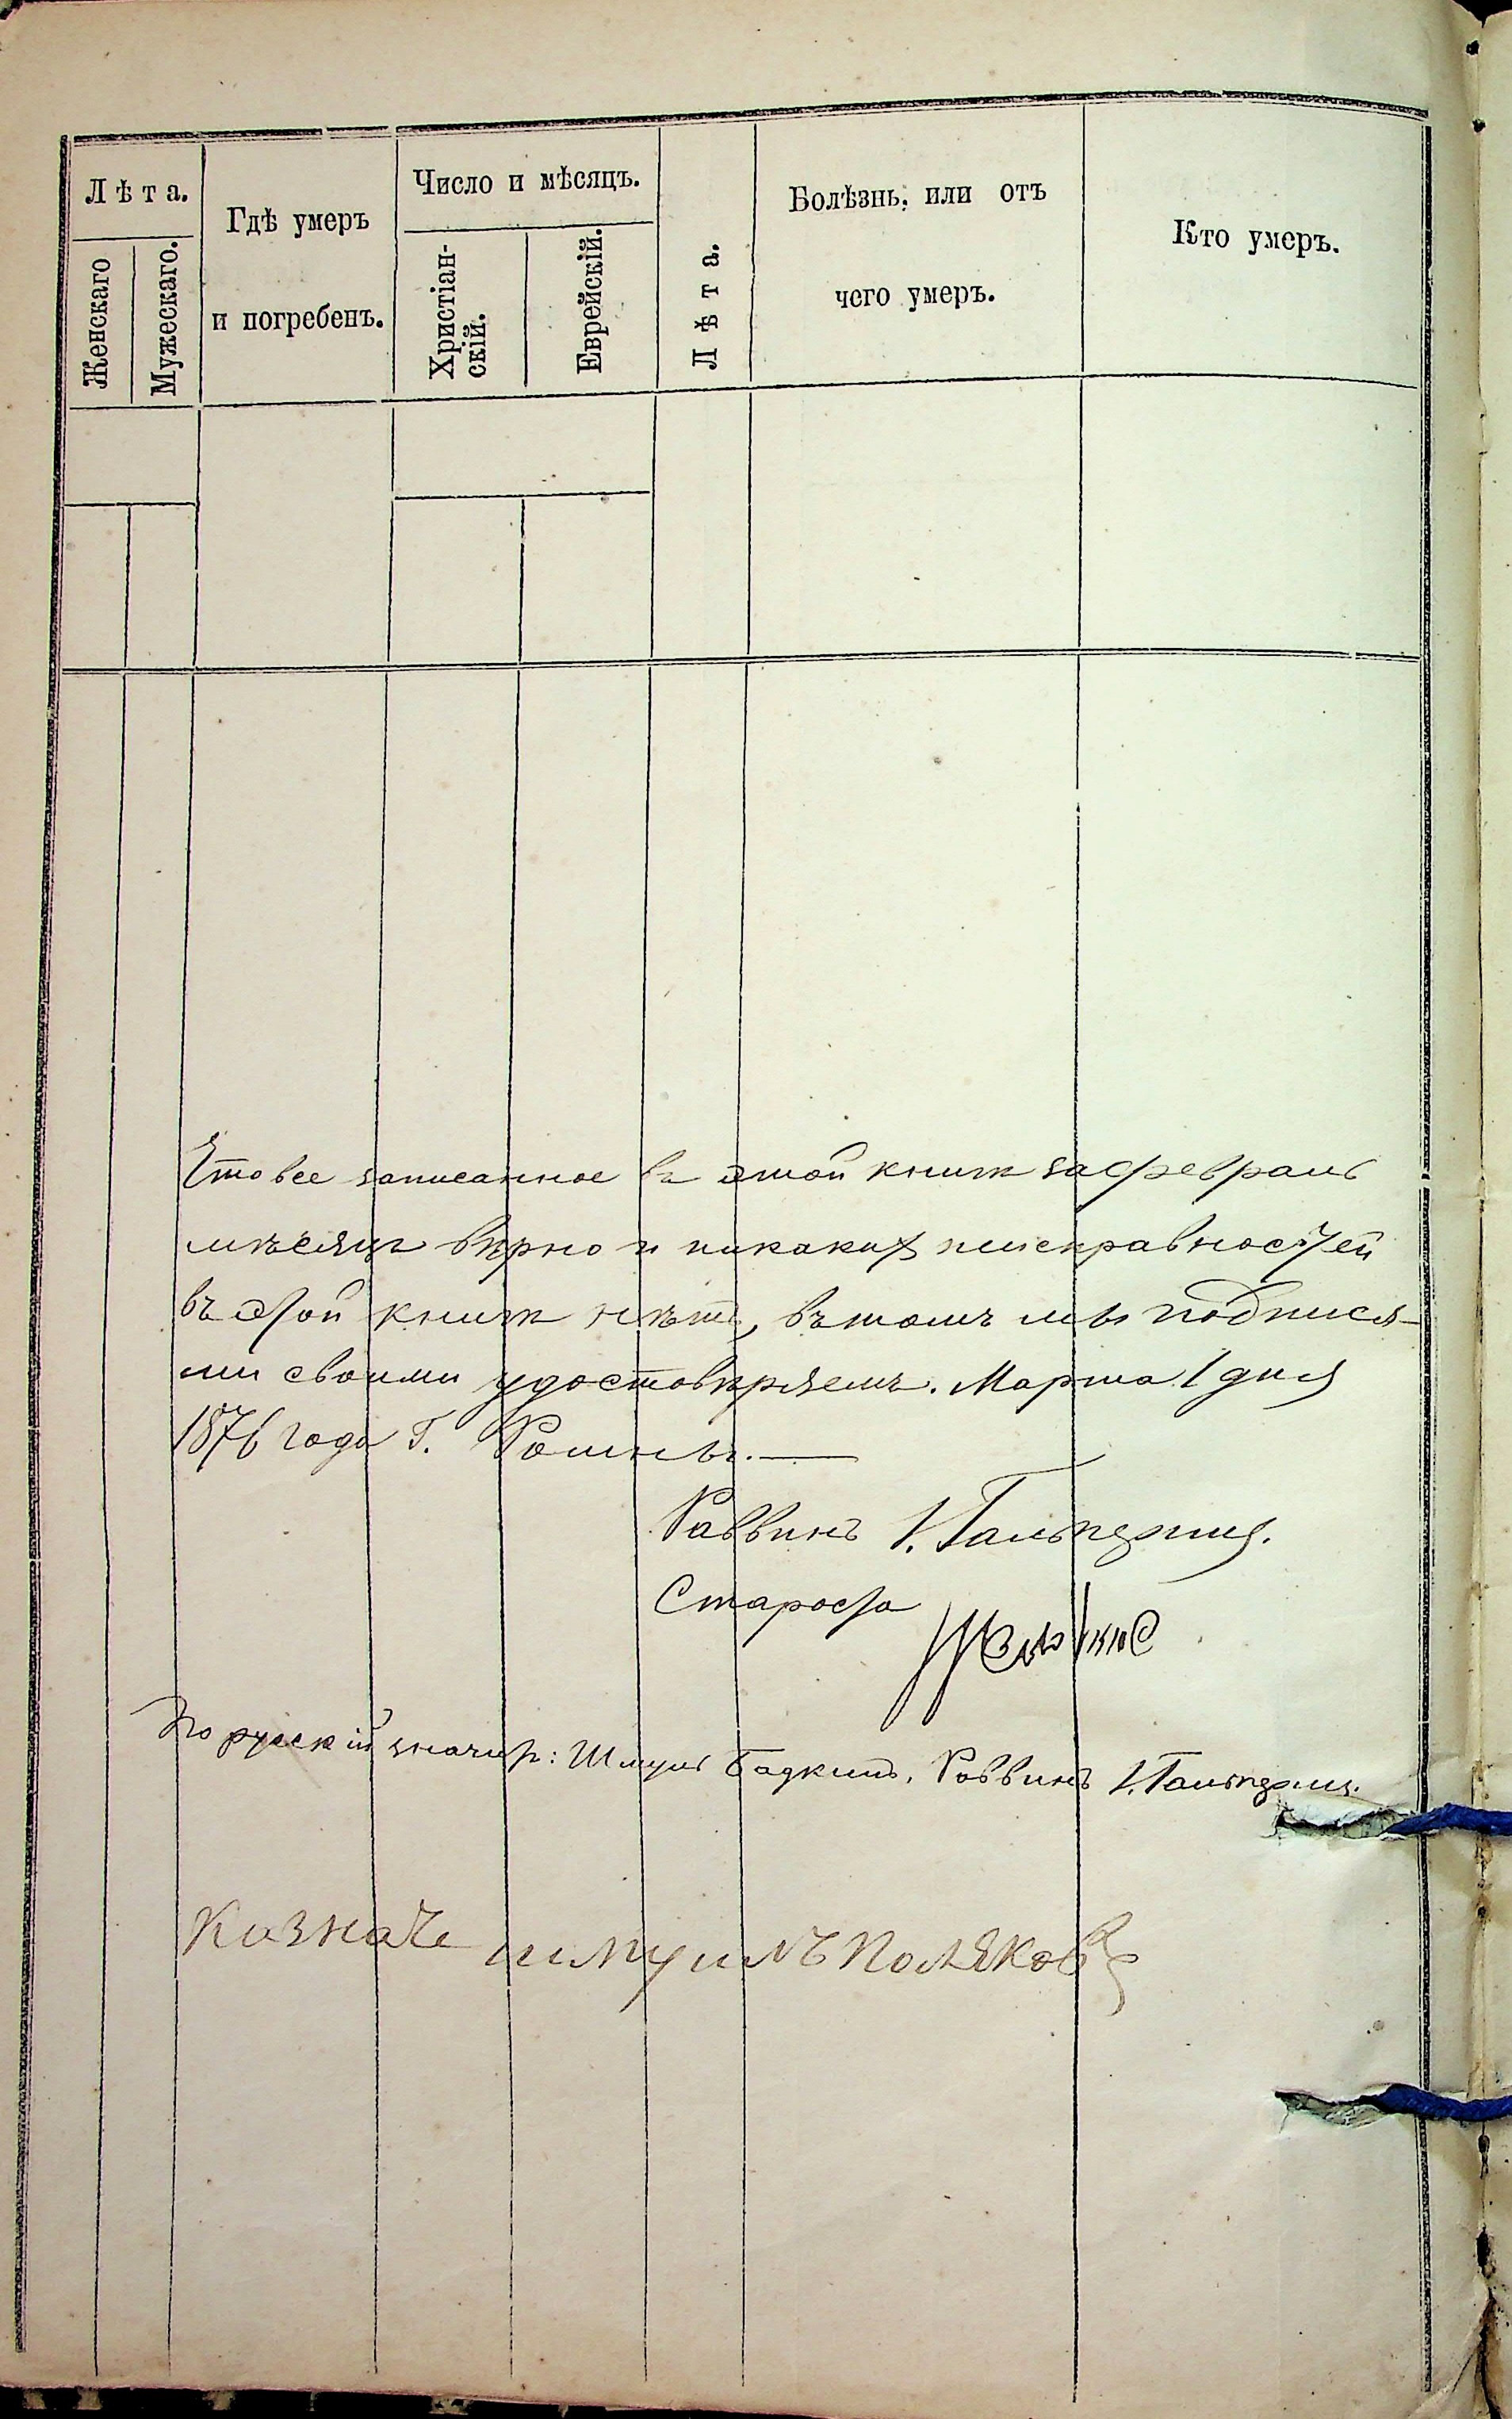 Лѣта.
Женскаго
Мужескаго.
Гдѣ умеръ
и погребенъ.
Число и мѣсяцъ.
Христіан-
скій.
Еврейскій.
Лѣта.
Болѣзнь, или отъ
чего умеръ.
Кто умеръ.
Что все записанное въ этой книгѣ за февраль
мѣсяцъ вѣрно и никаких неисправностей
въ этой книгѣ нѣтъ, въ томъ мы подпися-
ми своими удостовѣряемъ. Марта 1 дня
1876 года Г. Ромны.—
Раввинъ І. Гальперинъ.
Староста
По русскій значитъ: Шмуль Раввинъ І. Гальперинъ.
Казначе Поляковъ